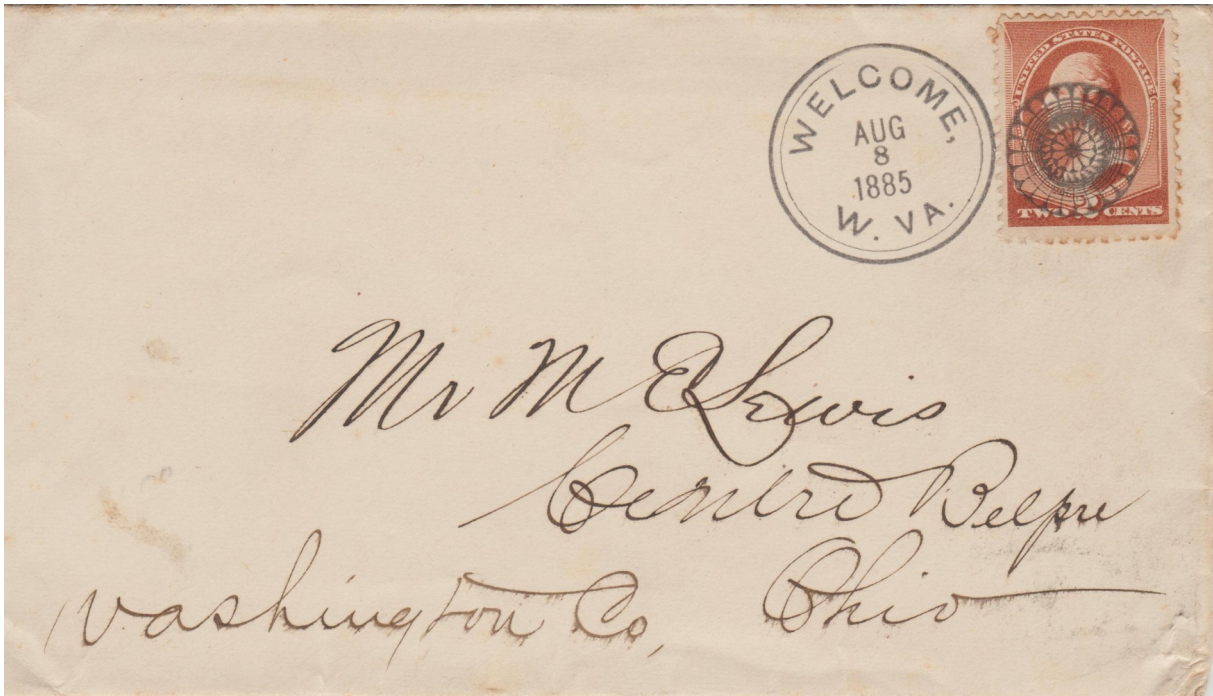 WELCOME,
AUG
8
1885
W. VA.
UNITED STATES POSTAGE
TWO 2 CENTS
Mr M E Lewis
Centre Belpre
Washington Co, Ohio